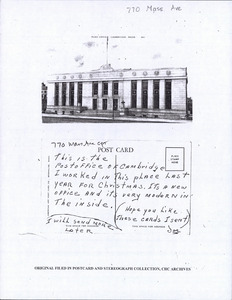 770 Mass Ave
770 Mass. Ave cgr
POST CARD
This is the
Postoffice of Cambridge
I worked in this place last
year for Christmas. It's a new
office and it's very modern in
The inside.
(Hope you like
Those cards I sent)
I will send more
later
Joe
ORIGINAL FILED IN POSTCARD AND STEREOGRAPH COLLECTION, CHC ARCHIVES